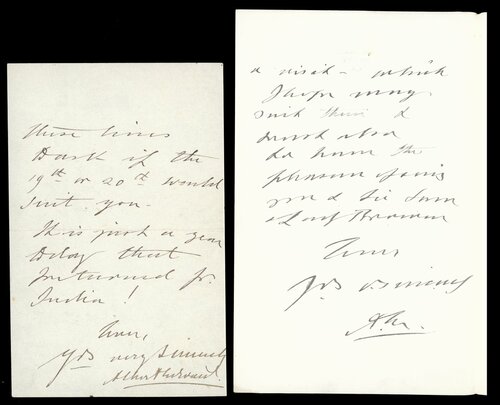 these lines
Dark if the
19th or 20th would
suit you.
It is just a year
today that
I returned fr.
India!
Ever,
yrs very sincerely
a visit - which
I hope may
suit them &
also
to have the
pleasure of seeing
you & Sir
& Lady
Ever
yrs v. sincerely